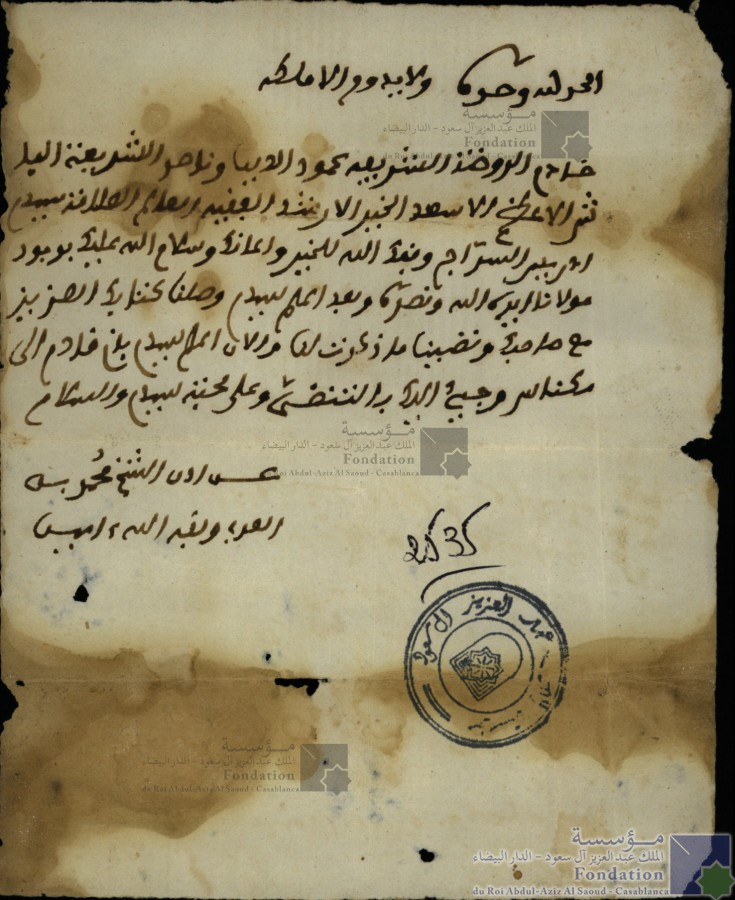 الحمد لله وحده ولا يدوم الا ملكه
خديم الروضة الشريفة عمود الادبا وناصر الشريعة
الاسعد الخير الارشد الفقيه العالم العلامة سيدي
ادريس السراج وفقك الله للخير واعانك وسلام الله عليك بوجود
مولانا ايده الله ونصره وبعد اعلم سيدي وصلنا كتابك العزيز
مع صاحبك وقضينا ما ذكرت لنا والان اعلم سيدي باني قادم الى
مكناس وعلى محبة سيدي والسلام
عن اذن الشيخ محمد بن
وفقه الله امين
2535
عبد العزيز آل سعود
مؤسسة
الملك عبد العزيز آل سعود - الدار البيضاء
Fondation
du Roi Abdul-Aziz Al Saoud - Casablanca